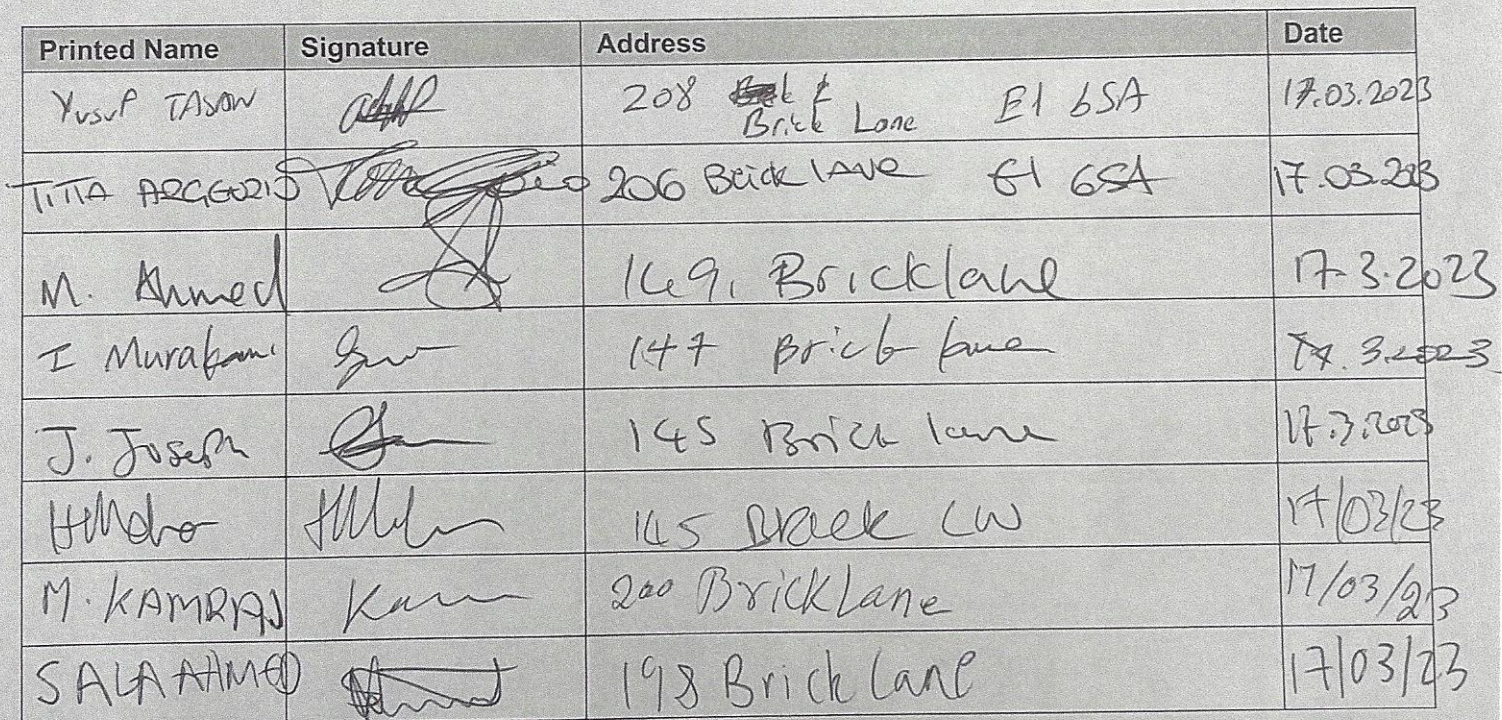 Printed Name Signature Address Date
Yusuf TASAN 208 Brick Lane E1 6SA 17.03.2023
TITIA 206 Brick lane E1 6SA 17.03.2023
M. Ahmed 149, Bricklane 17-3.2023
I Murakami 147 Brick lane 17.3.2023
J. Joseph 145 Brick lane 17.3.2023
145 17/03/23
M. KAMRAJ Kam 200 Brick Lane 17/03/23
SALA AHMED 198 Brick Lane 17/03/23